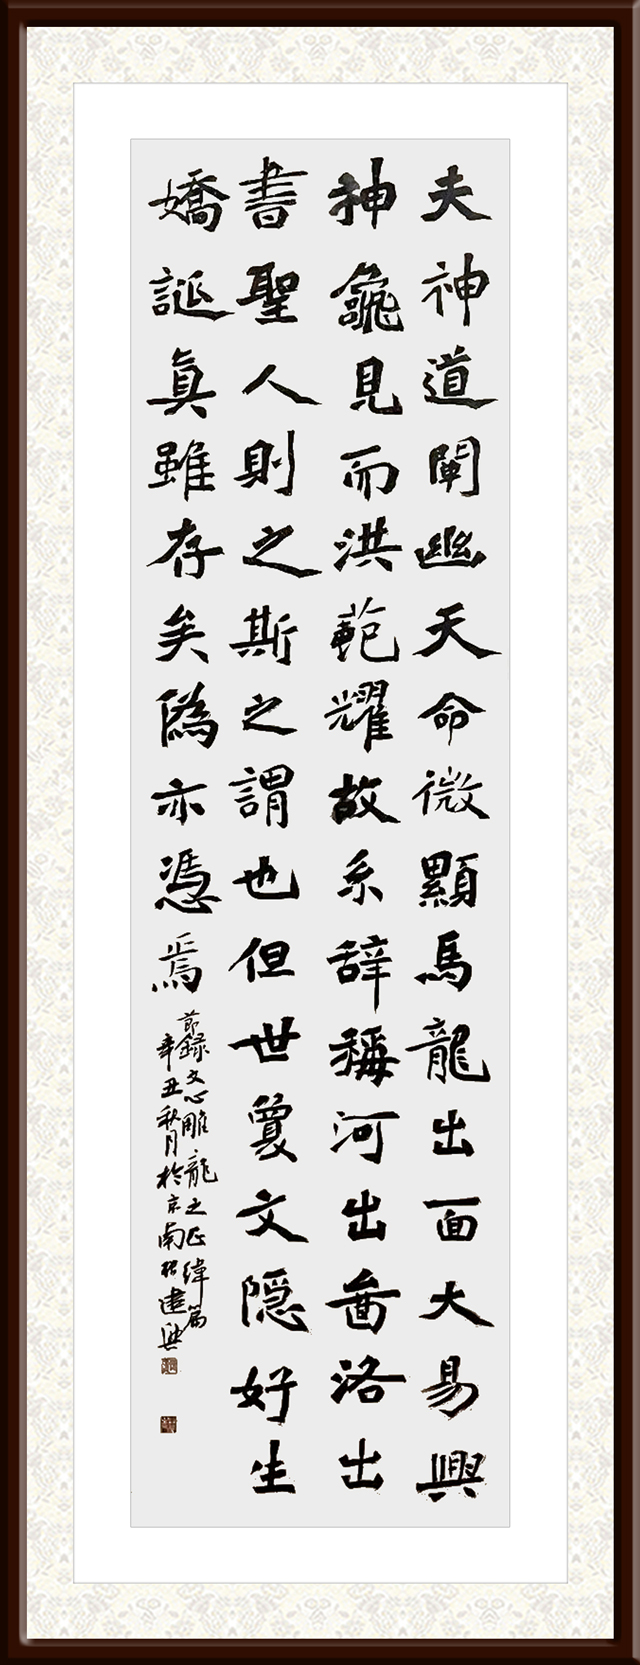 夫神道闡幽天命微顯馬龍出面大易興
神龜見而洪範耀故系辭稱河出啚洛出
書聖人則之斯之謂也但世夐文隱好生
嬌誕真雖存矣偽亦憑焉
節錄文心雕龍之正緯篇
辛丑秋月於京南建興